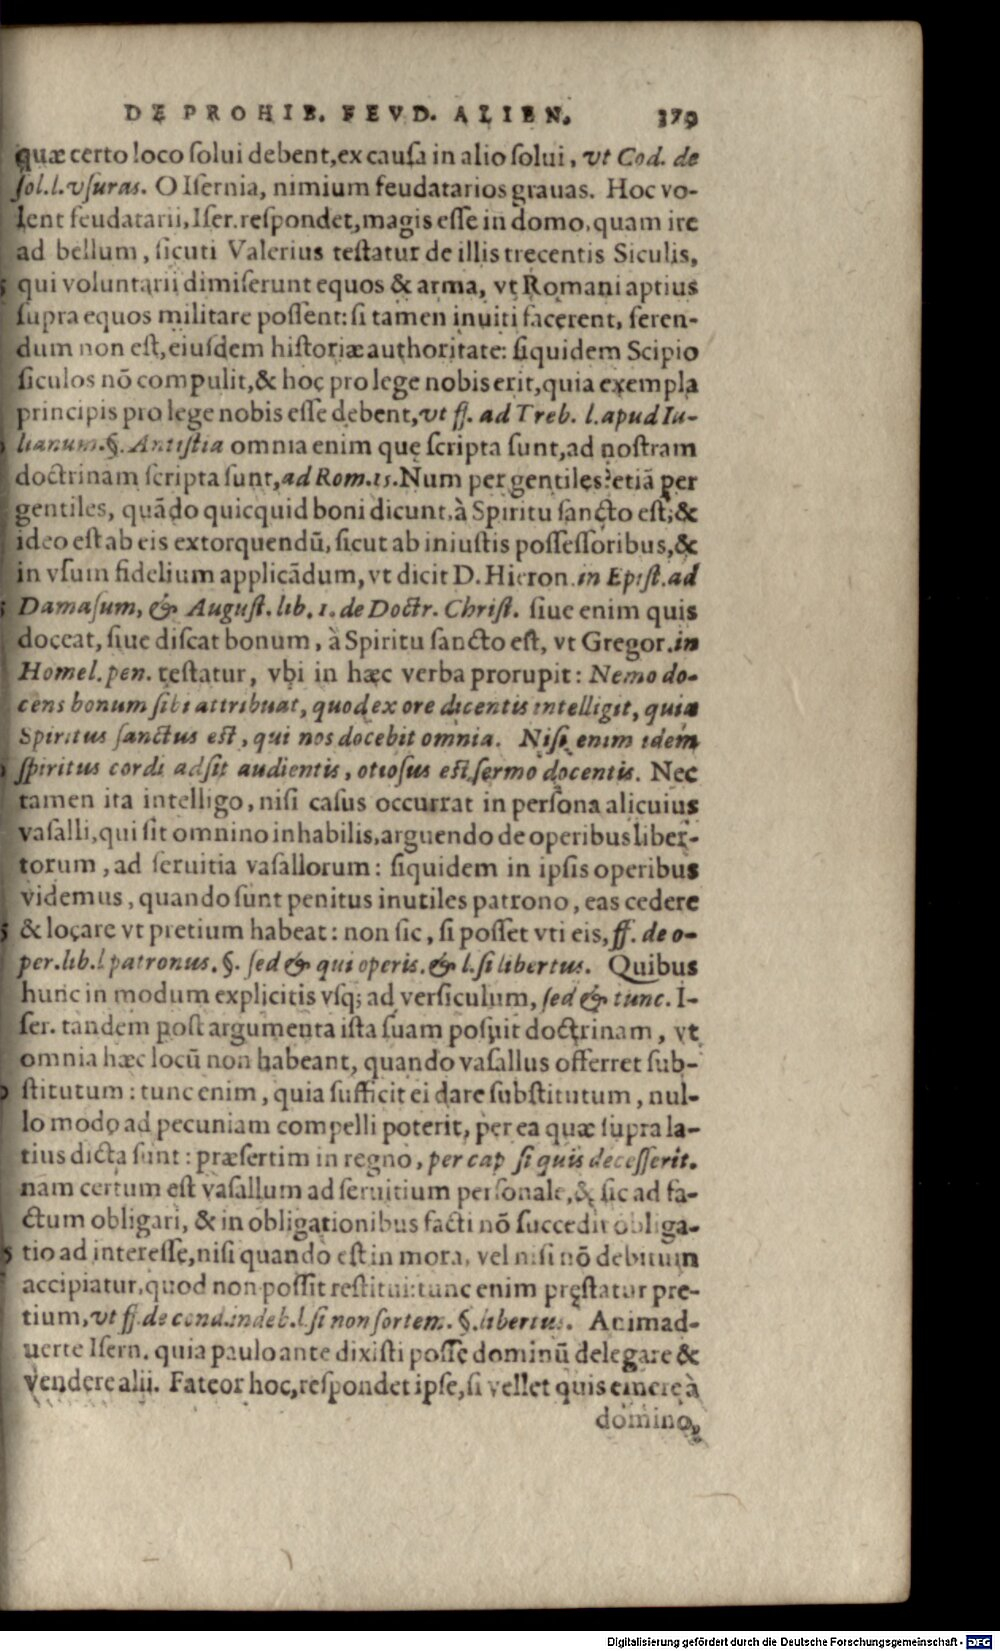 DE PROHIB. FEVD. ALIEN. 379
quæ certo loco solui debent, ex causa in alio solui, vt Cod. de
sol. l. vsuras. O Isernia, nimium feudatarios grauas. Hoc vo-
lent feudatarii, Iser. respondet, magis esse in domo, quam ire
ad bellum, sicuti Valerius testatur de illis trecentis Siculis,
qui voluntarii dimiserunt equos & arma, vt Romani aptius
supra equos militare possent: si tamen inuiti facerent, feren-
dum non est, eiusdem historiæ authoritate: siquidem Scipio
siculos nō compulit, & hoc pro lege nobis erit, quia exempla
principis pro lege nobis esse debent, vt ff. ad Treb. l. apud Iu-
lianum. §. Antistia omnia enim quę scripta sunt, ad nostram
doctrinam scripta sunt, ad Rom. 15. Num per gentiles? etiā per
gentiles, quādo quicquid boni dicunt, à Spiritu sancto est; &
ideo est ab eis extorquendū, sicut ab iniustis possessoribus, &
in vsum fidelium applicādum, vt dicit D. Hieron. in Epist. ad
Damasum, & August. lib. 1. de Doctr. Christ. siue enim quis
doceat, siue discat bonum, à Spiritu sancto est, vt Gregor. in
Homel. pen. testatur, vbi in hæc verba prorupit: Nemo do-
cens bonum sibi attribuat, quod ex ore dicentis intelligit, quia
Spiritus sanctus est, qui nos docebit omnia. Nisi enim idem
spiritus cordi adsit audientis, otiosus est sermo docentis. Nec
tamen ita intelligo, nisi casus occurrat in persona alicuius
vasalli, qui sit omnino inhabilis, arguendo de operibus liber-
torum, ad seruitia vasallorum: siquidem in ipsis operibus
videmus, quando sunt penitus inutiles patrono, eas cedere
& locare vt pretium habeat: non sic, si posset vti eis, ff. de o-
per. lib. l patronus. §. sed & qui operis. & l. si libertus. Quibus
hunc in modum explicitis vsq; ad versiculum, sed & tunc. I-
ser. tandem post argumenta ista suam posuit doctrinam, vt
omnia hæc locū non habeant, quando vasallus offerret sub-
stitutum: tunc enim, quia sufficit ei dare substitutum, nul-
lo modo ad pecuniam compelli poterit, per ea quæ supra la-
tius dicta sunt: præsertim in regno, per cap si quis decesserit.
nam certum est vasallum ad seruitium personale, & sic ad fa-
ctum obligari, & in obligationibus facti nō succedit obliga-
tio ad interesse, nisi quando est in mora, vel nisi nō debitum
accipiatur, quod non possit restitui: tunc enim pręstatur pre-
tium, vt ff de cond. indeb. l. si non sortem. §. libertus. Animad-
uerte Isern. quia paulo ante dixisti posse dominū delegare &
vendere alii. Fateor hoc, respondet ipse, si vellet quis emere à
domino,
Digitalisierung gefördert durch die Deutsche Forschungsgemeinschaft - DFG